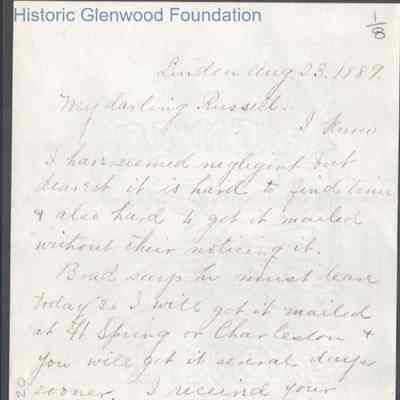 Historic Glenwood Foundation
1/8
Linden Aug 23. 1889.
My darling Russell.
I know
I have seemed negligent but
dearest it is hard to find time
& also hard to get it mailed
without their noticing it.
Brad says he must leave
today so I will get it mailed
at Spring or Charleston &
you will get it several days
sooner. I received your